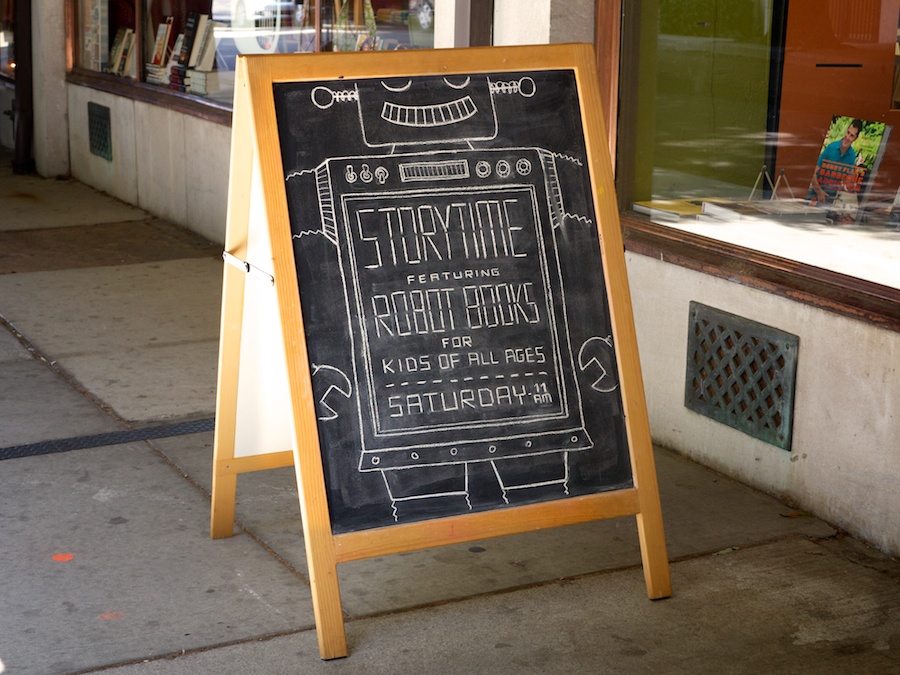 STORYTIME
FEATURING
ROBOT BOOKS
FOR
KIDS OF ALL AGES
SATURDAY-11 AM